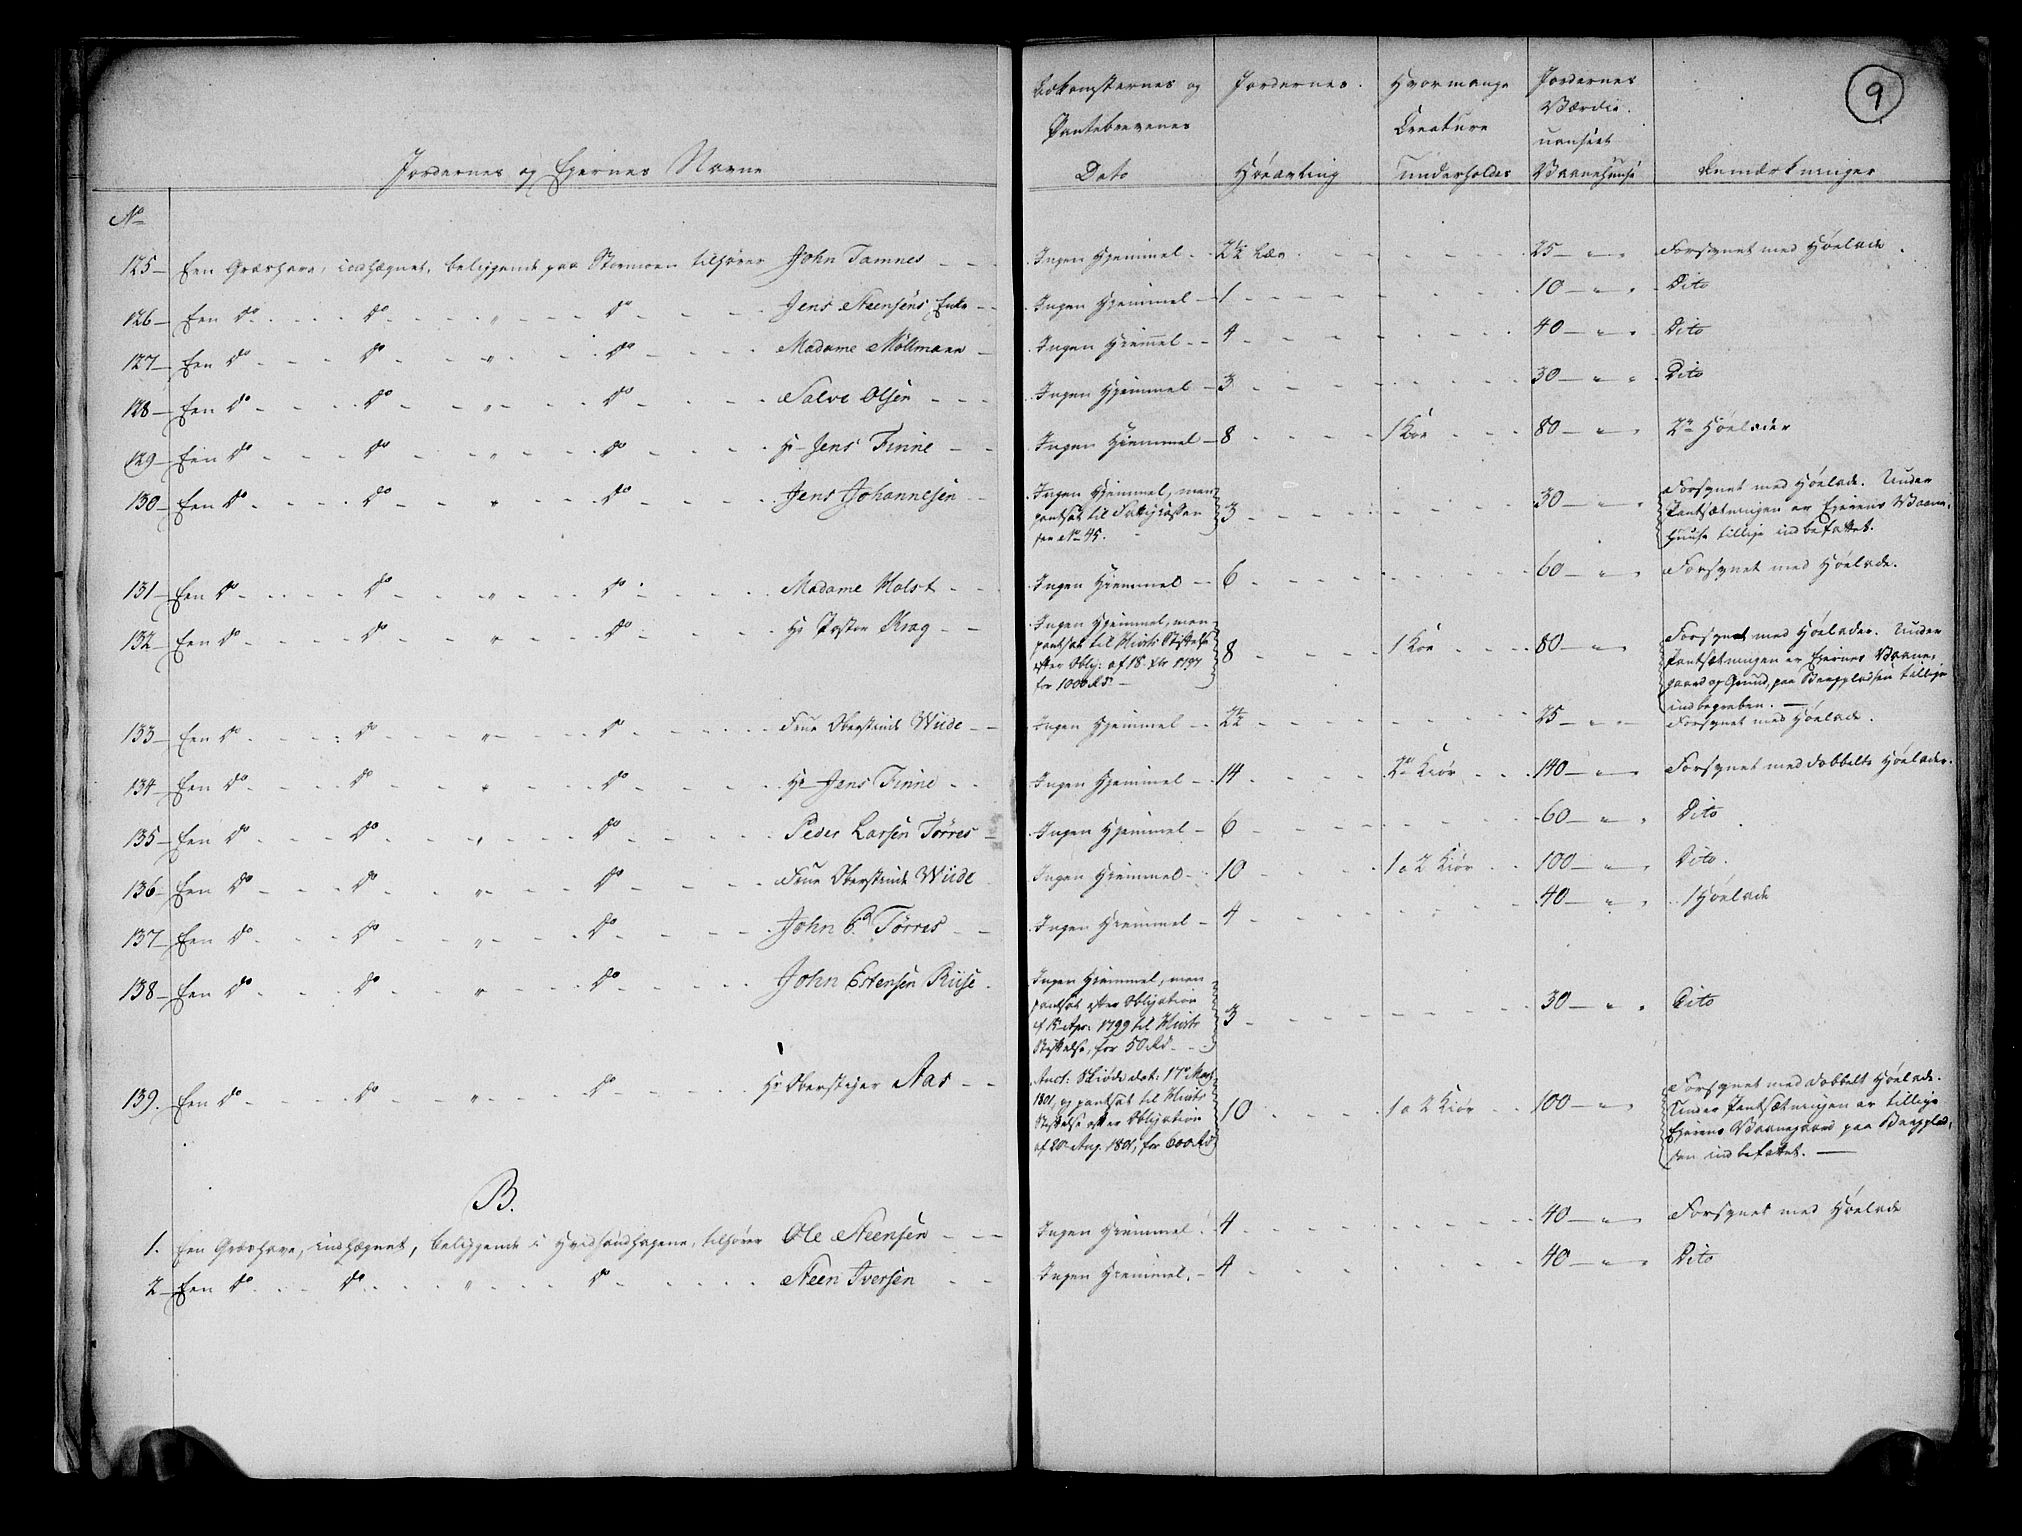 9
Jordernes og Ejernes Navne
Adkomsternes og Pantebrevenes Dato
Jordernes Høeavling
Hvormange Creature Underholdes
Jordernes Værdie uanseet Vaanehuuse
Anmærkninger
No
125 – Een Græshave, indhægnet, beliggende paa Stormoen tilhører John Tamnes – – – Ingen Hjemmel – 2½ Læs – – – 25 – „ – Forsynet med Høelade.
126 – Een do – – do – „ – do – – Jens Steensens Enke – – Ingen Hjemmel – 1 – – – 10 – „ – Dito
127 – Een do – – do – „ – do – – Madame Möllmann – Ingen Hjemmel – 4 – – – 40 – „ – Dito
128 – Een do – – do – „ – do – – Salve Olsen – – – Ingen Hjemmel – 3 – – – 30 – „ – Dito
129 – Een do – – do – „ – do – – Hr Jens Finne – – Ingen Hjemmel – 8 – – – 1 Koe – – 80 – „ – 2de Høelader
130 – Een do – – do – „ – do – – Jens Johannesen – – Ingen Hjemmel, men
pantsat til Fattigkassen
see No 45. – 3 – – – 30 – „ – Forsynet med Høelade. Under
Pantsætningen er Ejerens Vaane,
huuse tillige indbefattet.
131 – Een do – – do – „ – do – – Madame Holst – – Ingen Hjemmel – 6 – – – 60 – „ – Forsynet med Høelade.
132 – Een do – – do – „ – do – – Hr Pastor Krag – – Ingen Hjemmel, men
pantsat til Hiorts Stiftelse
efter Oblig: af 18 Xbr 1797
for 1000 Rd – 8 – – 1 Koe – – 80 – „ – Forsynet med Høelader. Under
Pantsætningen er Ejerens Vaane,
gaard og Grund, paa Bergpladsen tillige
indbegreben. –
133 – Een do – – do – „ – do – – Frue Oberstinde Wiide – – Ingen Hjemmel – 2½ – – – 25 – „ – Forsynet med Høelade.
134 – Een do – – do – „ – do – – Hr Jens Finne – – Ingen Hjemmel – 14 – – 2de Kiør – – 140 – „ – Forsynet med dobbelte Høelader.
135 – Een do – – do – „ – do – – Peder Larsen Törres – Ingen Hjemmel – 6 – – – 60 – „ – Dito
136 – Een do – – do – „ – do – – Frue Oberstinde Wiide Ingen Hjemmel – 10 – – 1 a 2 Kiør – 100 – „ – Dito.
137 – Een do – – do – „ – do – – John Törres – – Ingen Hjemmel – 4 – – – 40 – „ – 1 Høelade
138 – Een do – – do – „ – do – – John Estensen Riise – Ingen Hjemmel, men
pantsat efter Obligation
af Apr: 1799 til Hiorts
Stiftelse, for 50 Rd – – 3 – – – 30 – „ – Dito
139. Een do – – do – „ – do – – Hr Oberstiger Aas – – Auct: Skiøde dat: 17de
1801, og pantsat til Hiorts
Stiftelse efter Obligation
af 20 Aug. 1801, for 600 Rd 10 – – 1 a 2 Kiør – – 100 – „ – Forsynet med dobbelt Høelade.
Under Pantsætningen er tillige
Ejerens Vaanegaard paa Bergplad,
sen indbefattet. –
B.
1. Een Græshave, indhægnet, beliggende i Hvidsandhagene, tilhører Ole Steensen – – – Ingen Hjemmel – 4 – – – 40 – „ – Forsynet med Høelade
2 – Een do – – do – „ – do – – Steen Iversen – – Ingen Hjemmel. – 4 – – – 40 – „ – Dito